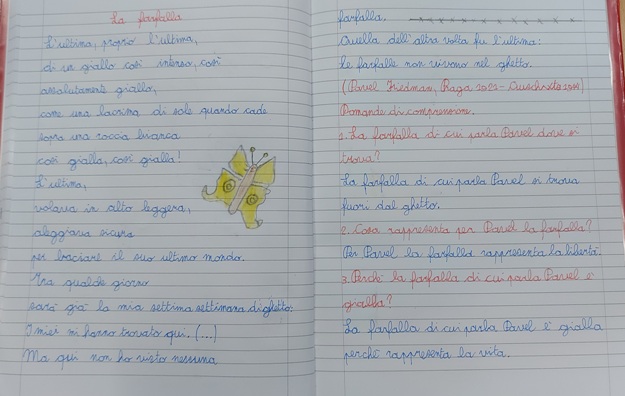 La farfalla
L'ultima, proprio l'ultima,
di un giallo così intenso, così
assolutamente giallo,
come una lacrima di sole quando cade
sopra una roccia bianca
così gialla, così gialla!
L'ultima,
volava in alto leggera,
aleggiava sicura
per baciare il suo ultimo mondo.
Tra qualche giorno
sarà già la mia settima settimana di ghetto:
I miei mi hanno trovato qui. (...)
Ma qui non ho visto nessuna
farfalla.
Quella dell'altra volta fu l'ultima:
le farfalle non vivono nel ghetto.
(Pavel Friedman, Praga 1921 - Auschwitz 1944)
Domande di comprensione.
1. La farfalla di cui parla Pavel dove si
trova?
La farfalla di cui parla Pavel si trova
fuori dal ghetto.
2. Cosa rappresenta per Pavel la farfalla?
Per Pavel la farfalla rappresenta la libertà.
3. Perché la farfalla di cui parla Pavel è
gialla?
La farfalla di cui parla Pavel è gialla
perché rappresenta la vita.